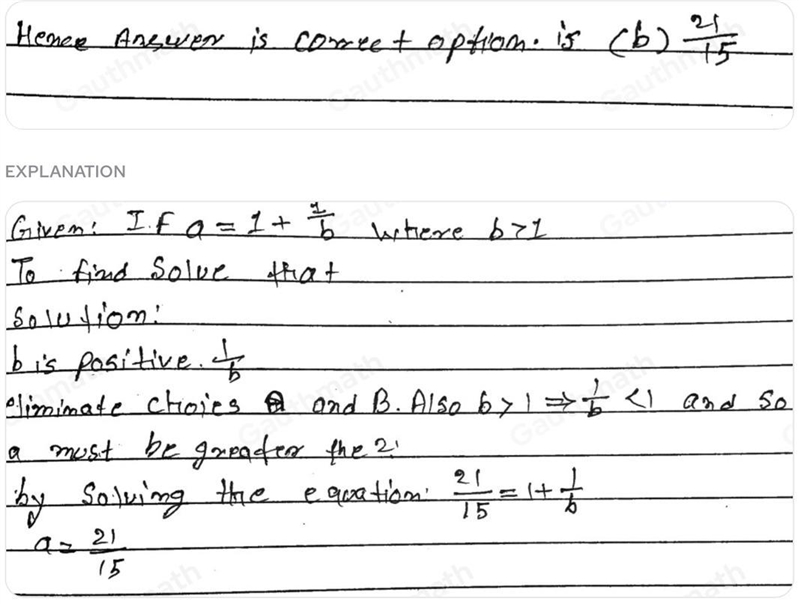 Hence Answer is correct option. is (b) 21/15
EXPLANATION
Given: I.F a = 1 + 1/b where b>1
To find Solve that
Solution:
b is positive. 1/b
eliminate choies A and B. Also b > 1 ⇒ 1/b < 1 and so
a must be greader the 2.
by Solving the equation: 21/15 = 1 + 1/b
a = 21/15